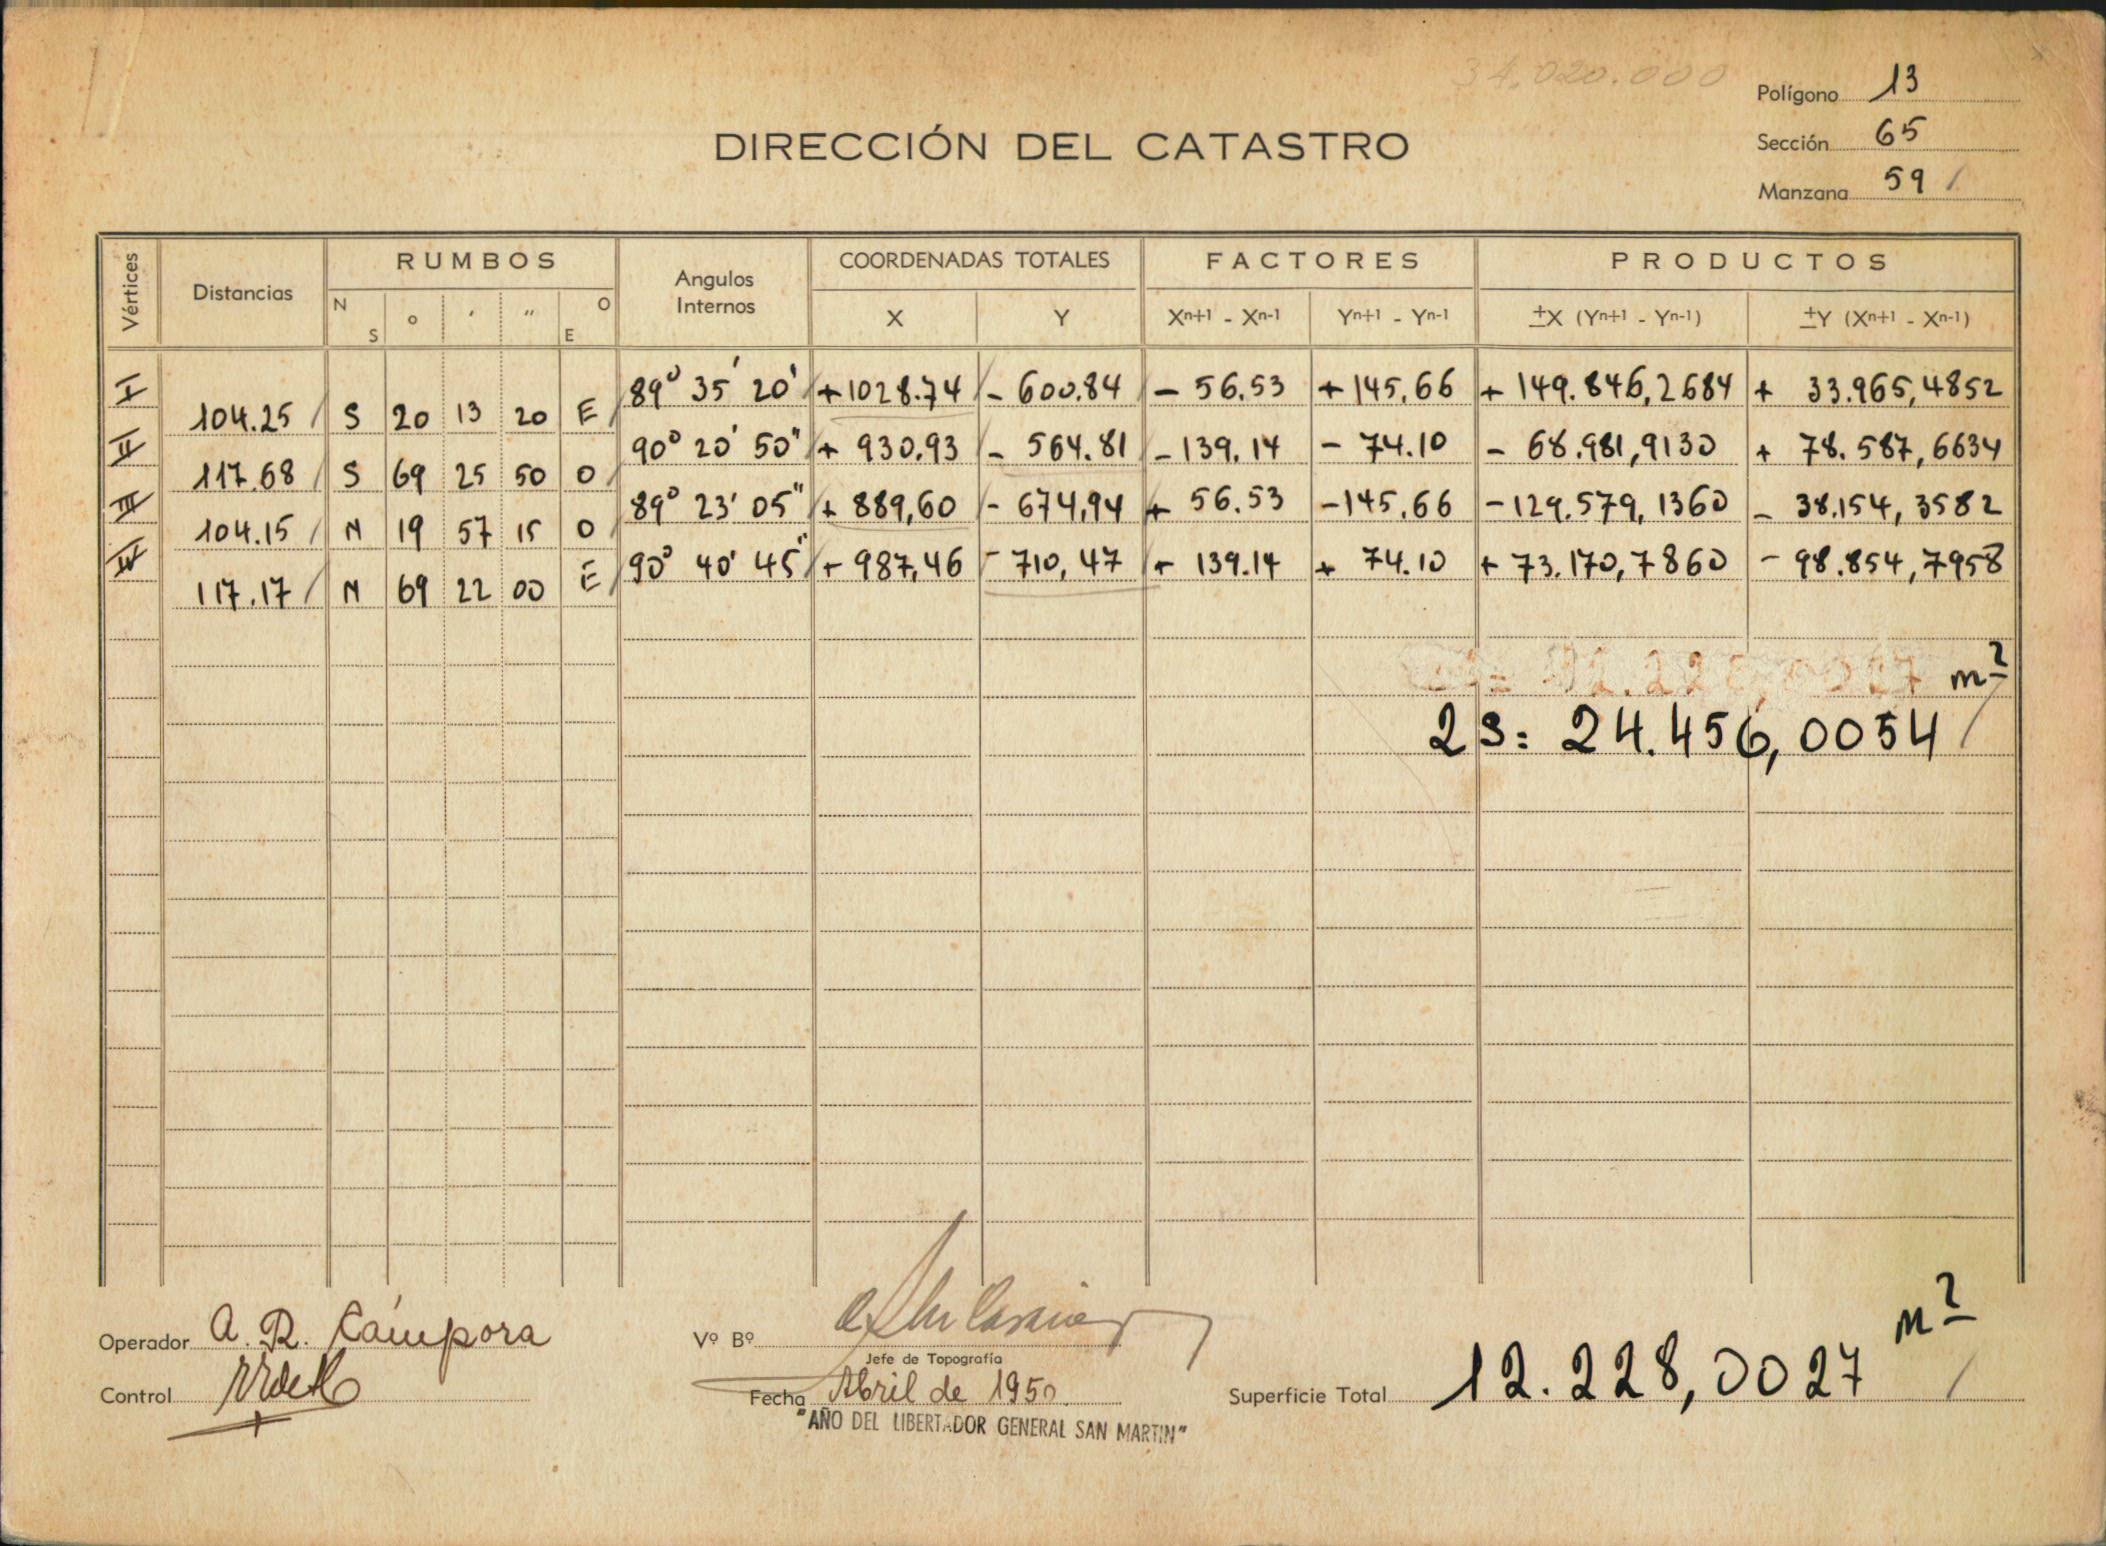 34.020.000
Polígono 13
DIRECCIÓN DEL CATASTRO
Sección 65
Manzana 59 /
Vértices
Distancias
RUMBOS
N S
o
'
"
O E
Angulos
Internos
COORDENADAS TOTALES
X
Y
FACTORES
Xn+1 - Xn-1
Yn+1 - Yn-1
PRODUCTOS
±X (Yn+1 - Yn-1)
±Y (Xn+1 - Xn-1)
I 89° 35' 20' + 1028.74 - 600.84 - 56.53 + 145.66 + 149.846,2684 + 33.965,4852
104.25 S 20 13 20 E
II 90° 20' 50" + 930.93 - 564.81 - 139.14 - 74.10 - 68.981,9130 + 78.587,6634
117.68 S 69 25 50 O
III 89° 23' 05" + 889,60 - 674,94 + 56.53 - 145.66 - 129.579,1360 - 38.154,3582
104.15 N 19 57 15 O
IV 90° 40' 45" + 987,46 - 710,47 + 139.14 + 74.10 + 73.170,7860 - 98.854,7958
117.17 N 69 22 00 E
m²
2S: 24.456,0054
Operador A. R. Cámpora
Vº Bº
Jefe de Topografía
Control
Fecha Abril de 1950.
"AÑO DEL LIBERTADOR GENERAL SAN MARTIN"
Superficie Total 12.228,0027 m²